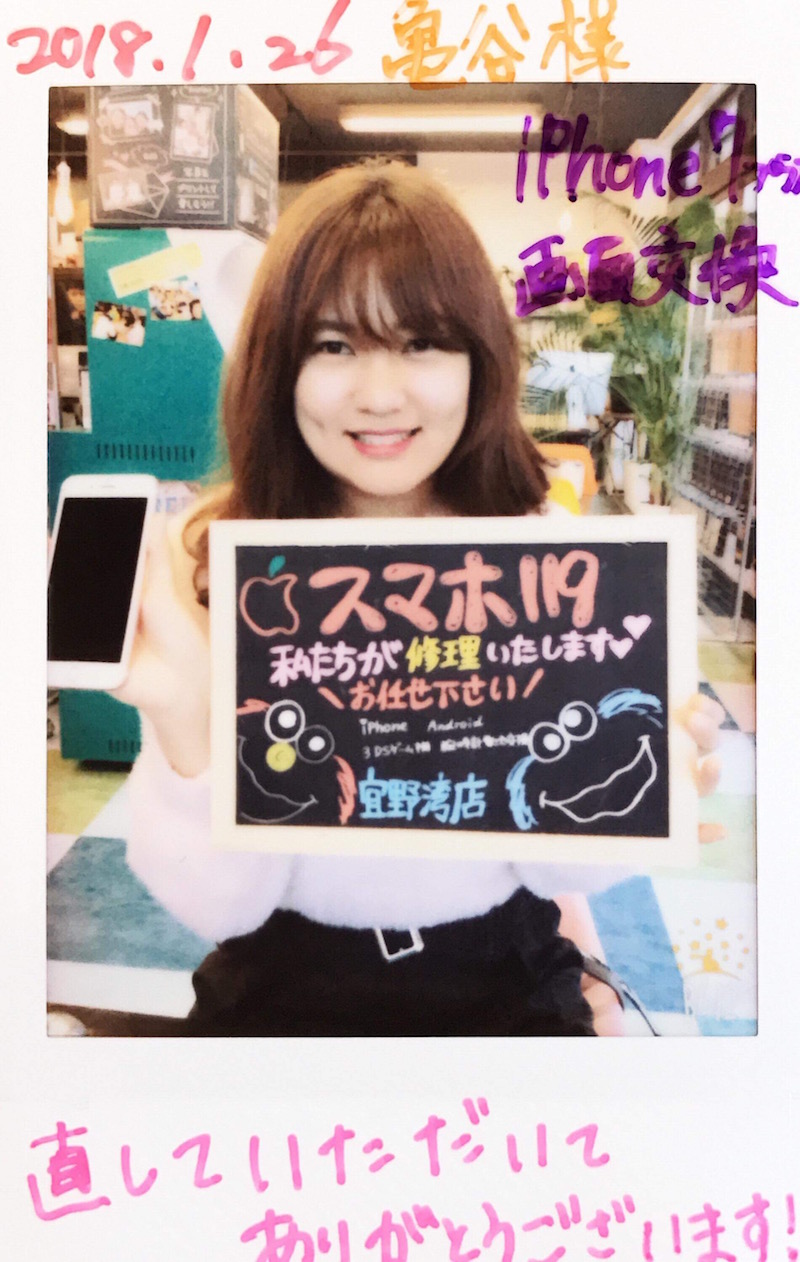 2018.1.26 亀谷様
iPhone7
画面交換
スマホ119
私たちが修理いたします♥♥
\お任せ下さい/
iPhone Android
3DSゲーム機
宜野湾店
直していただいて
ありがとうございます!